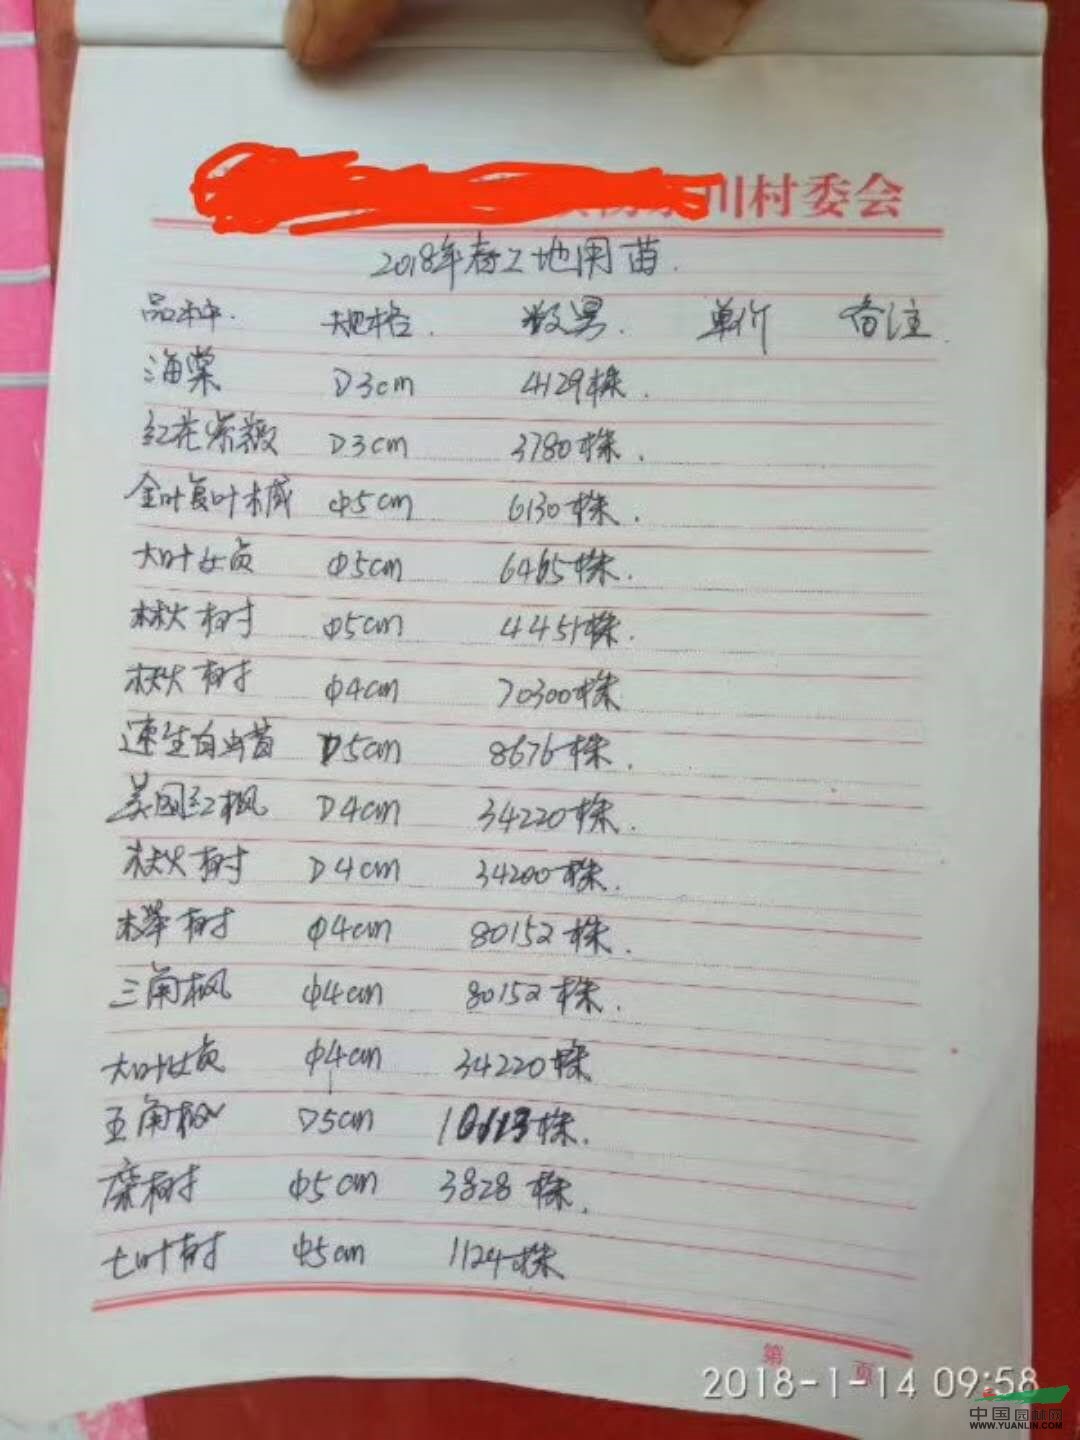 川村委会
2018年春工地用苗.
品种. 规格. 数量. 单价 备注.
海棠 D3cm 4129株.
红花紫薇 D3cm 3780株.
金叶复叶槭 φ5cm 6130株.
大叶女贞 φ5cm 6465株.
楸树 φ5cm 4451株.
楸树 φ4cm 70300株
速生白蜡 D5cm 8676株.
美国红枫 D4cm 34220株.
楸树 D4cm 34200株.
榉树 φ4cm 80152株.
三角枫 φ4cm 80152株.
大叶女贞 φ4cm 34220株
五角枫 D5cm 株.
栾树 φ5cm 3828株.
七叶树 φ5cm 1124株
第 页
2018-1-14 09:58
中国园林网
WWW.YUANLIN.COM